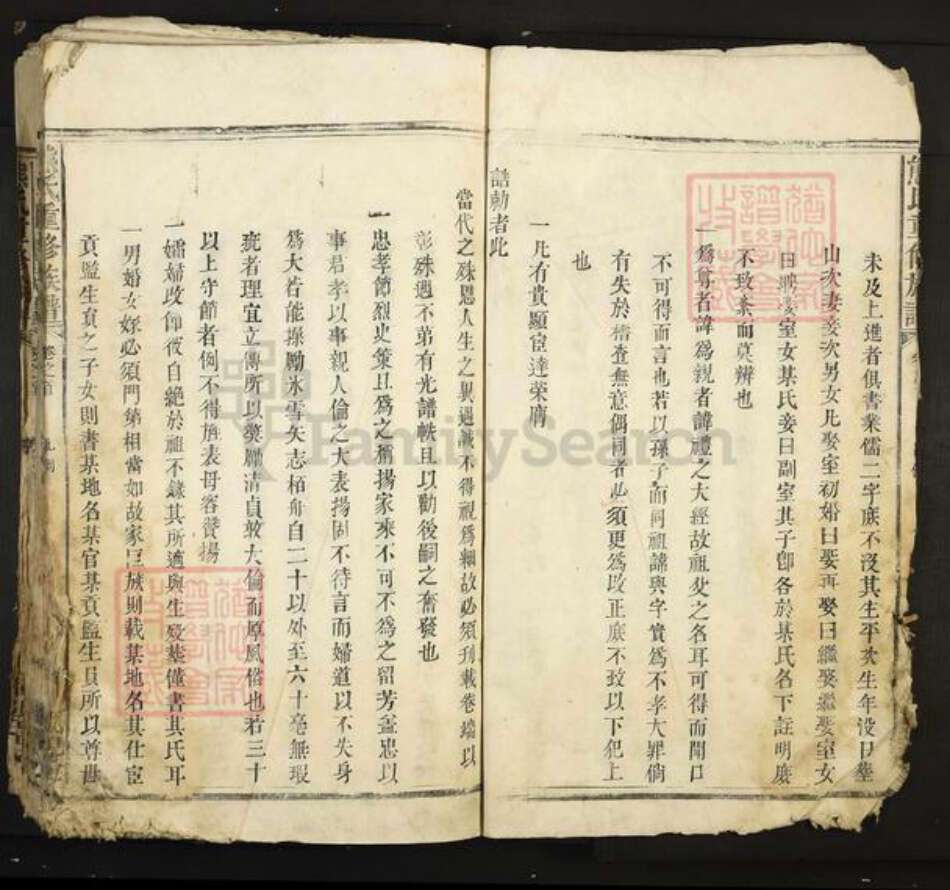 未及上進者俱書業儒二字庶不沒其生平次生年沒日塋
山次妻妾次男女凡娶室初婚曰娶再娶曰繼娶繼娶室女
曰聘娶室女某氏妾曰副室其子卽各於某氏名下註明庶
不致紊而莫辨也
一爲尊者諱爲親者諱禮之大經故祖父之名耳可得而聞口
不可得而言也若以孫子而同祖諱與字實爲不孝大罪倘
有失於稽查無意偶同者必須更爲改正庶不致以下犯上
也
一凡有貴顯宦達榮膺
誥勅者此
當代之殊恩人生之異遇誠不得視爲細故必須刊載卷端以
彰殊遇不第有光譜帙且以勸後嗣之奮發也
一忠孝節烈史策且爲之稱揚家乘不可不爲之留芳盖忠以
事君孝以事親人倫之大表揚固不待言而婦道以不失身
爲大若能操勵氷雪矢志栢舟自二十以外至六十毫無瑕
疵者理宜立傳所以獎勵清貞敦大倫而厚風俗也若三十
以上守節者例不得旌表毋容贊揚
一孀婦改節彼自絕於祖不錄其所適與生歿塋僅書其氏耳
一男婚女嫁必須門第相當如故家巨族則載某地名其仕宦
貢監生員之子女則書某地名某官某貢監生員所以尊世
熊氏重修族譜
卷之首
熊氏重修族譜
FamilySearch